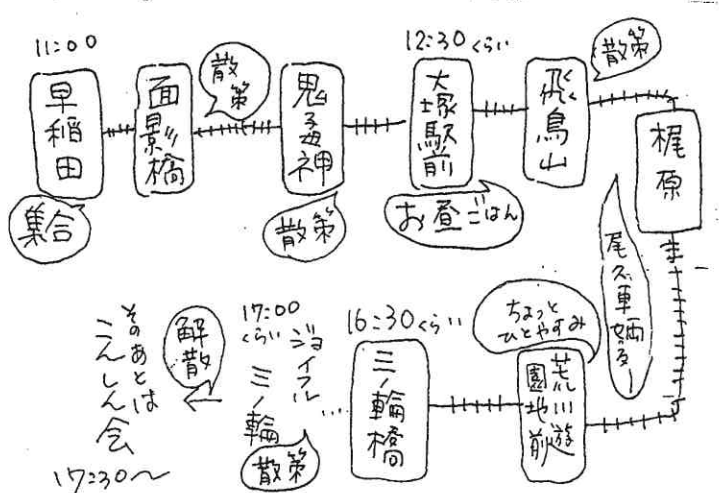 11:00
早稲田
集合
面影橋
散策
鬼子母神
散策
12:30くらい
大塚駅前
お昼ごはん
飛鳥山
散策
梶原
尾久車庫
荒川遊
園地前
ちょっと
ひとやすみ
16:30くらい
三ノ輪橋
17:00
くらい
ジョイフル
三ノ輪
散策
解散
そのあとは
こんしん会
17:30〜